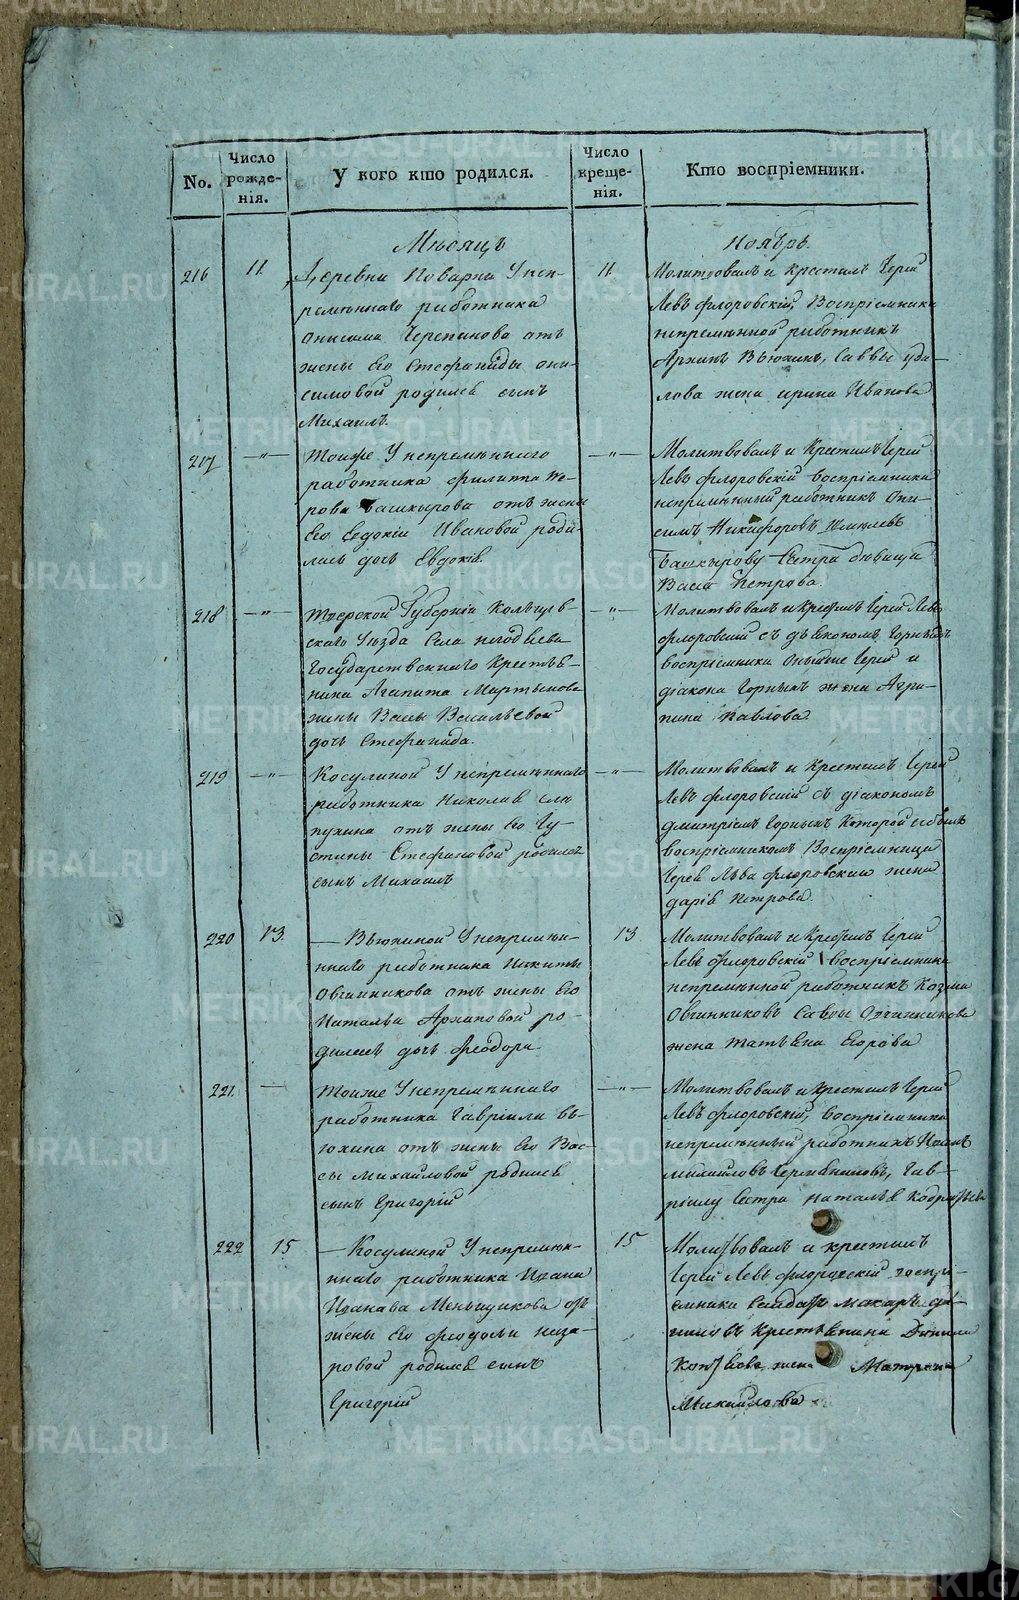 No.
Число рожде-нія.
У кого кто родился.
Число креще-нія.
Кто воспріемники.
Мѣсяцъ
Ноябрь.
216
11.
Деревни Поварни У неп-
ремѣннаго работника
Онисима Черепанова отъ
жены его Стефаниды они-
симовой родился сынъ
Михаилъ.
11.
Молитвовалъ и крестилъ Іерей
Левъ флоровскій, Воспріемники
непремѣнной работникъ
Архипъ Вьюхинъ, Саввы
жена ирина Иванова
217
—"—
Тойже У непремѣннаго
работника филиппа
Башкырова отъ жены
Его Евдокіи Ивановой роди-
лась дочь Евдокія.
—"—
Молитвовалъ и Крестилъ Іерей
Левъ флоровскій воспріемники
непремѣнный работникъ Они-
симъ Никифоровъ
Башкырову Сестра дѣвица
Васса Петрова.
218
—"—
Тверской Губерніи
скаго Уѣзда Села
Государственнаго Крестья-
нина Агапита Мартынова
жены Вассы Васильевой
дочь Стефанида.
—"—
Молитвовалъ и Крестилъ Іерей Левъ
флоровскій съ дьякономъ Горныхъ
воспріемники Онъ же Іерей и
діакона Горныхъ жена Агри-
пина Павлова.
219
—"—
Косулиной У непремѣннаго
работника Николая
отъ жены Его Іу-
стины Стефановой родился
сынъ Михаилъ
—"—
Молитвовалъ и Крестилъ Іерей
Левъ флоровскій съ діакономъ
Дмитріемъ Горныхъ Которой и былъ
воспріемникомъ Воспріемница
Іерея Льва флоровскаго жена
дарія Петрова.
220
13.
— Вьюхиной У непремѣн-
ннаго работника Никиты
Овчинникова отъ жены Его
Натальи Архиповой ро-
дилась дочь феодора.
13
Молитвовалъ и Крестилъ Іерей
Левъ флоровскій воспріемники
непремѣнной работникъ Козма
Овчинниковъ Савы Овчинникова
жена Татьяна Егорова
221.
—
Тойже У непремѣннаго
работника Гавріила Вь-
юхина отъ жены Его Вас-
сы Михайловой родился
сынъ Григорій
—"—
Молитвовалъ и крестилъ Іерей
Левъ флоровскій, воспріемники
непремѣнный работникъ
Михайловъ Гав-
ріилу Сестра Наталья
222
15
— Косулиной У непремѣн-
ннаго работника Ивана
Иванова Меньщикова отъ
жены Его феодосьи наза-
ровой родился сынъ
Григорій
15
Молитвовалъ и крестилъ
Іерей Левъ флоровскій воспрі-
емники Солдатъ Макаръ
Крестьянина
жена Матрена
Михайлова